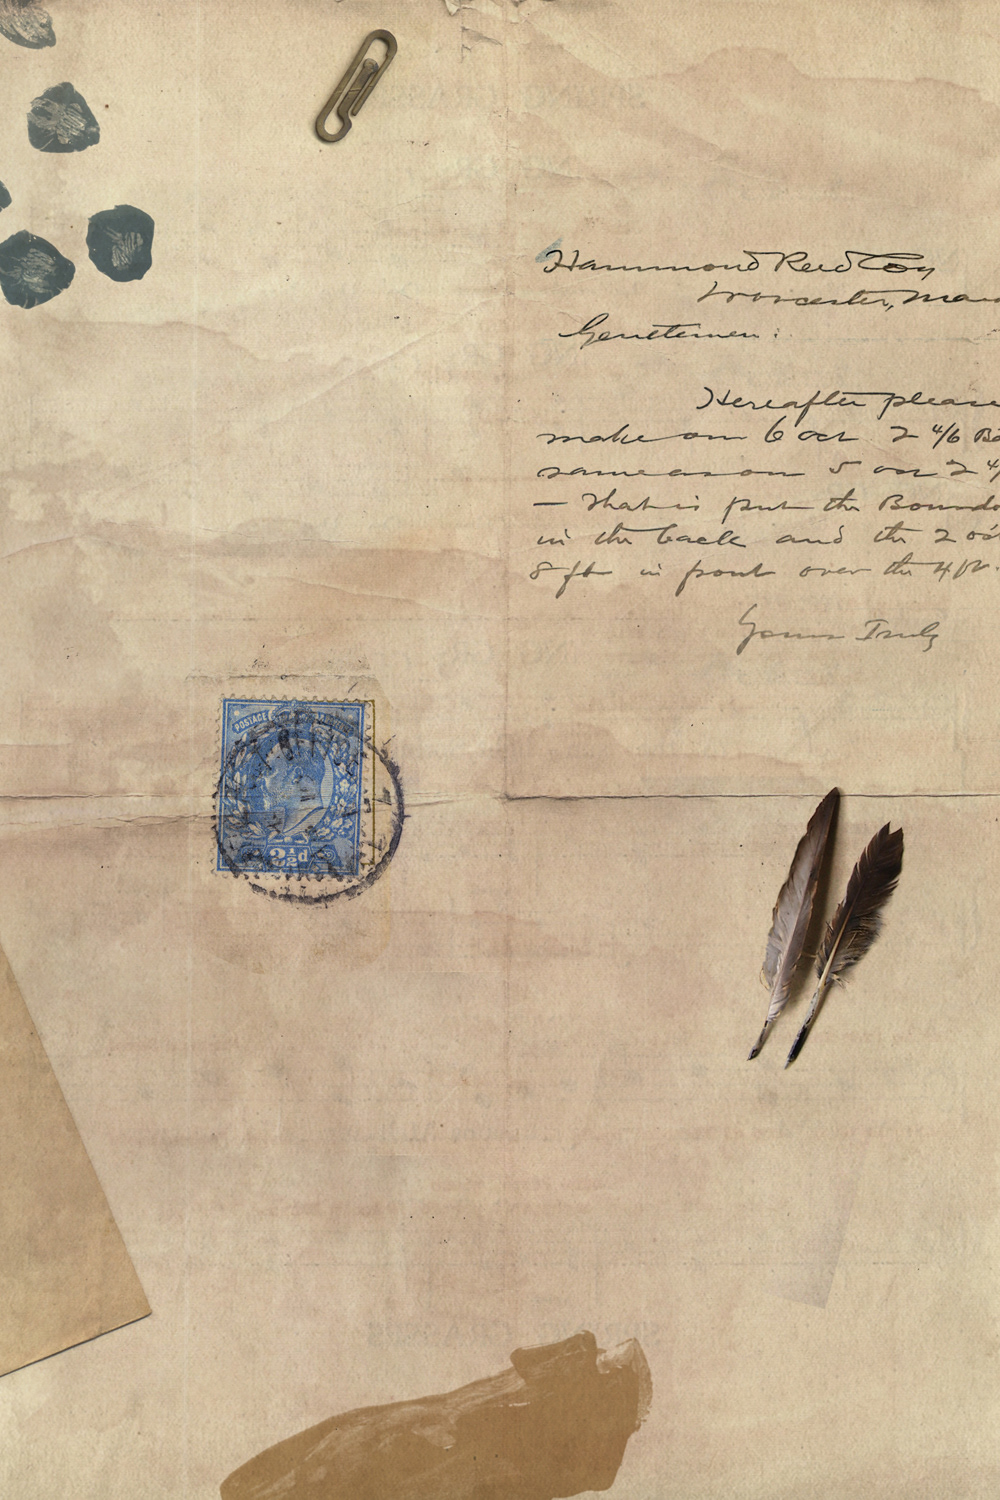 Hammond Reed Coy
Worcester, Mas
Gentlemen:
Hereafter please
make our 6 oct 2 4/6 Bo
same as our 5 oct 2 4/
— that is put the Bourdo
in the back and the 2 oct
8 ft in front over the 4 ft.
Yours Truly
POSTAGE
2½d